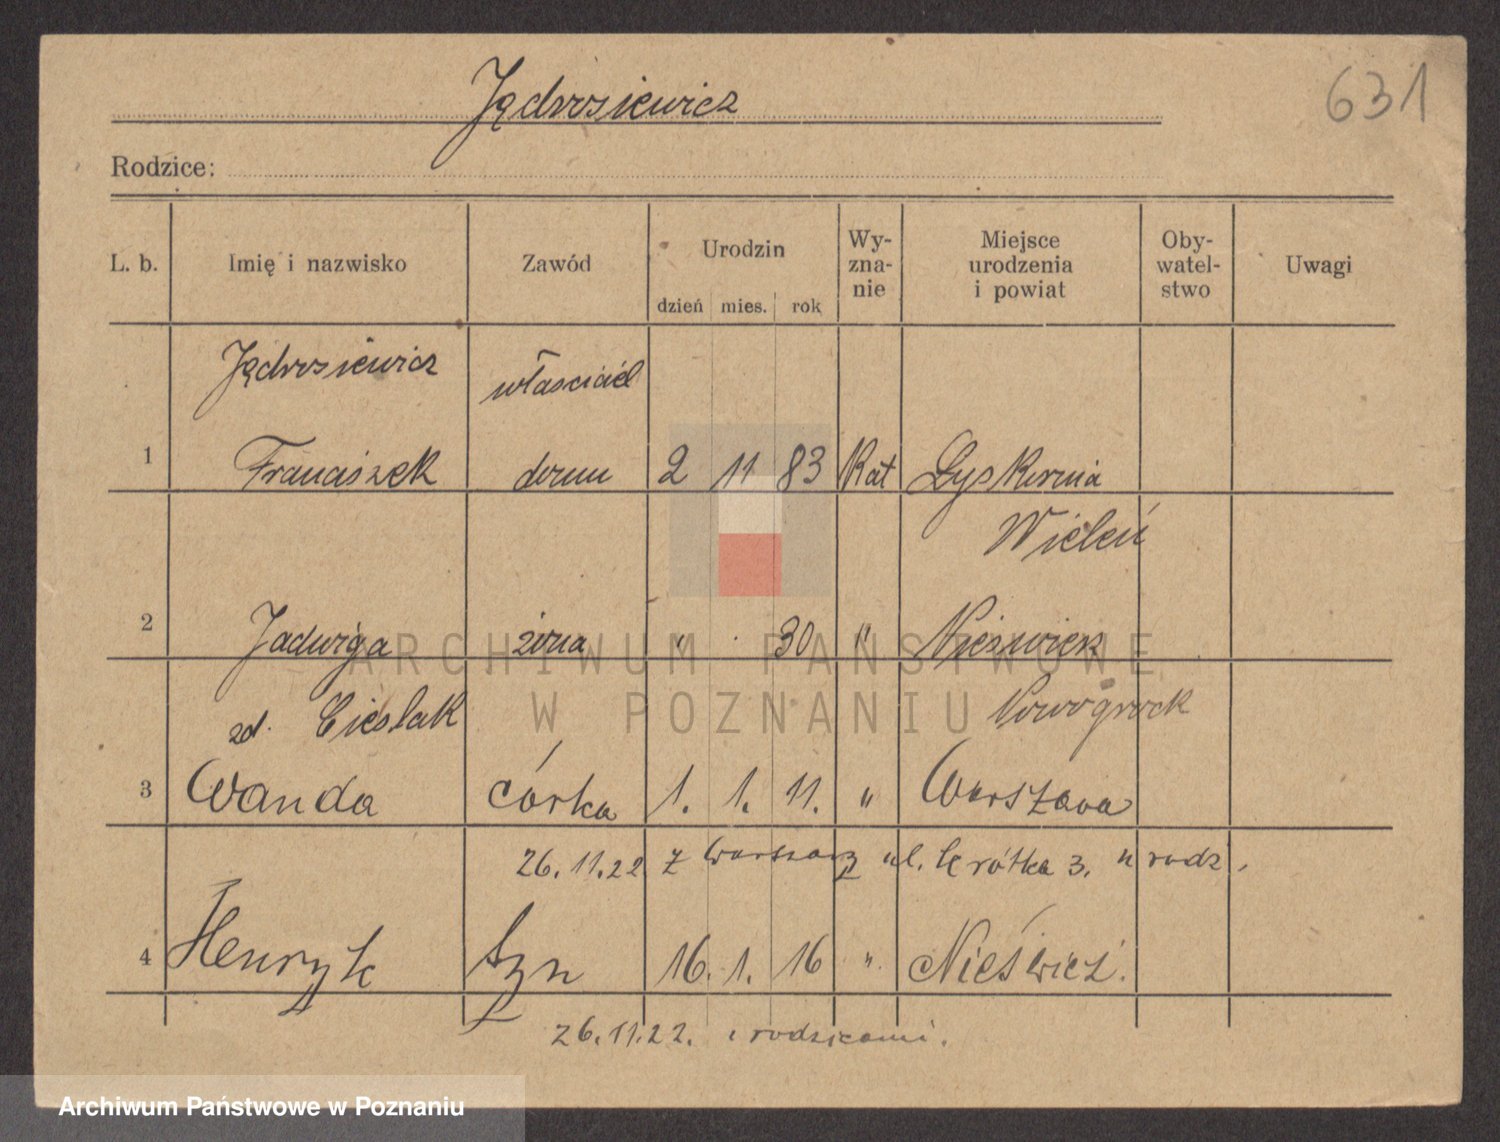 631
Jędrosiewicz
Rodzice:
L. b. Imię i nazwisko Zawód Urodzin Wy- Miejsce Oby- Uwagi
zna- urodzenia watel-
nie i powiat stwo
dzień mies. rok
Jędrosiewicz właściciel
1 Franciszek domu 2 11 83 Kat Lyskornia
Wieleń
2 Jadwiga żona " . 30 " Nieświez
zd. Cieslak Nowogrodk
3 Wanda córka 1. 1. 11. " Warszawa
26.11.22 z Warszawy ul. Krótka 3. u rodz.
4 Henryk Syn 16. 1. 16 " Nieświeź.
26.11.22. z rodzicami.
ARCHIWUM PAŃSTWOWE
W POZNANIU
Archiwum Państwowe w Poznaniu